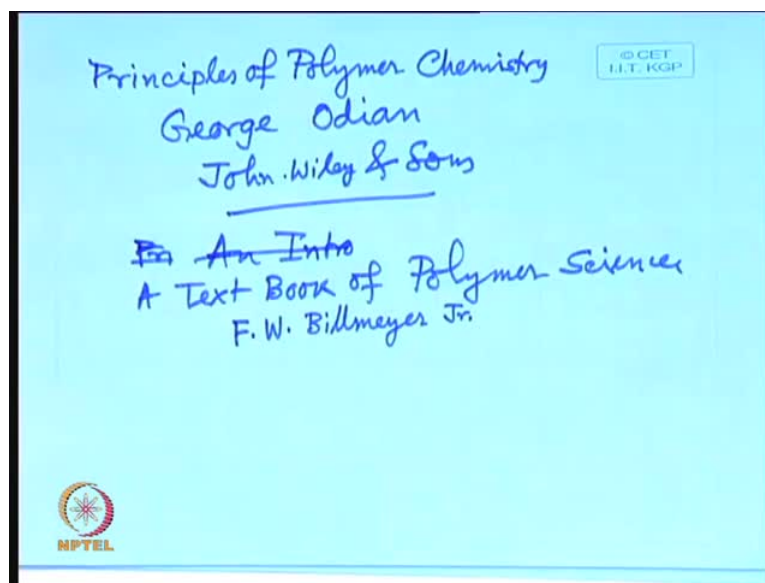 Principles of Polymer Chemistry
© CET
I.I.T. KGP
George Odian
John. Wiley & Sons
An Intro
A Text Book of Polymer Science
F. W. Billmeyer Jr.
NPTEL